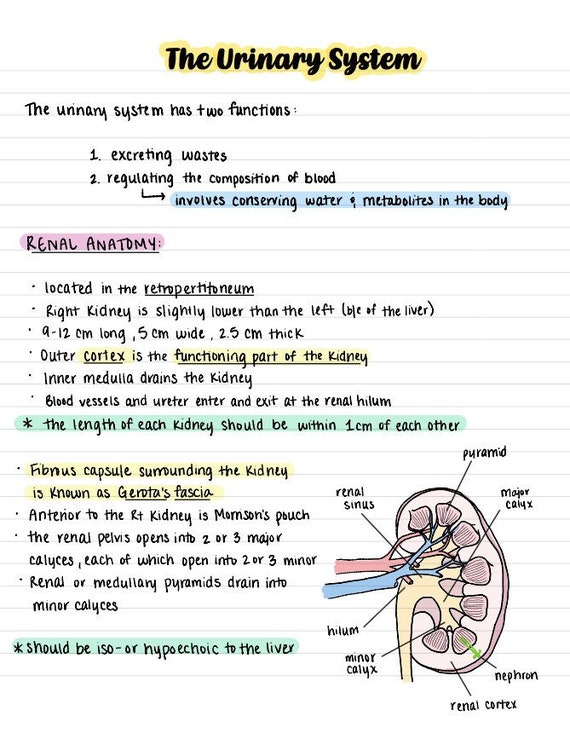 The Urinary System
The urinary system has two functions:
1. excreting wastes
2. regulating the composition of blood
involves conserving water & metabolites in the body
RENAL ANATOMY:
· located in the retropertitoneum
· Right Kidney is slightly lower than the left (b/c of the liver)
· 9-12 cm long, 5 cm wide, 2.5 cm thick
· Outer cortex is the functioning part of the Kidney
· Inner medulla drains the Kidney
· Blood vessels and ureter enter and exit at the renal hilum
* the length of each Kidney should be within 1cm of each other
· Fibrous capsule surrounding the Kidney
is known as Gerota's fascia
· Anterior to the Rt Kidney is Morrison's pouch
· the renal pelvis opens into 2 or 3 major
calyces, each of which open into 2 or 3 minor
· Renal or medullary pyramids drain into
minor calyces
* should be iso- or hypoechoic to the liver
pyramid
renal
sinus
major
calyx
hilum
minor
calyx
nephron
renal cortex